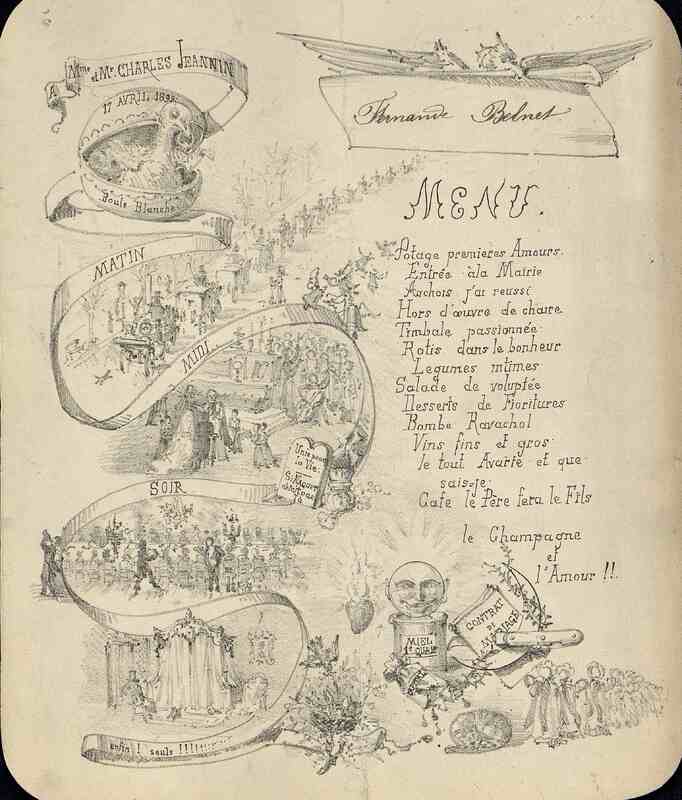 A Mme et Mr. CHARLES JEANNIN
17 AVRIL 189
Poule Blanche
Fernande Belnet
MENU.
Potage premières Amours.
Entrée à la Mairie
Anchois j'ai reussi
Hors d'œuvre de chaire
Timbale passionnée
Rotis dans le bonheur
Legumes intimes
Salade de voluptée
Desserts de Fioritures
Bombe Ravachol
Vins fins et gros
le tout Avarte et que
sais-je
Cafe le Père fera le Fils
le Champagne
et
l'Amour !!.
MATIN
MIDI
Unis pour
la Vie
SOIR
enfin ! seuls !!!!!!!!!
MIEL
1er QUAL
CONTRAT
DE
MARIAGE